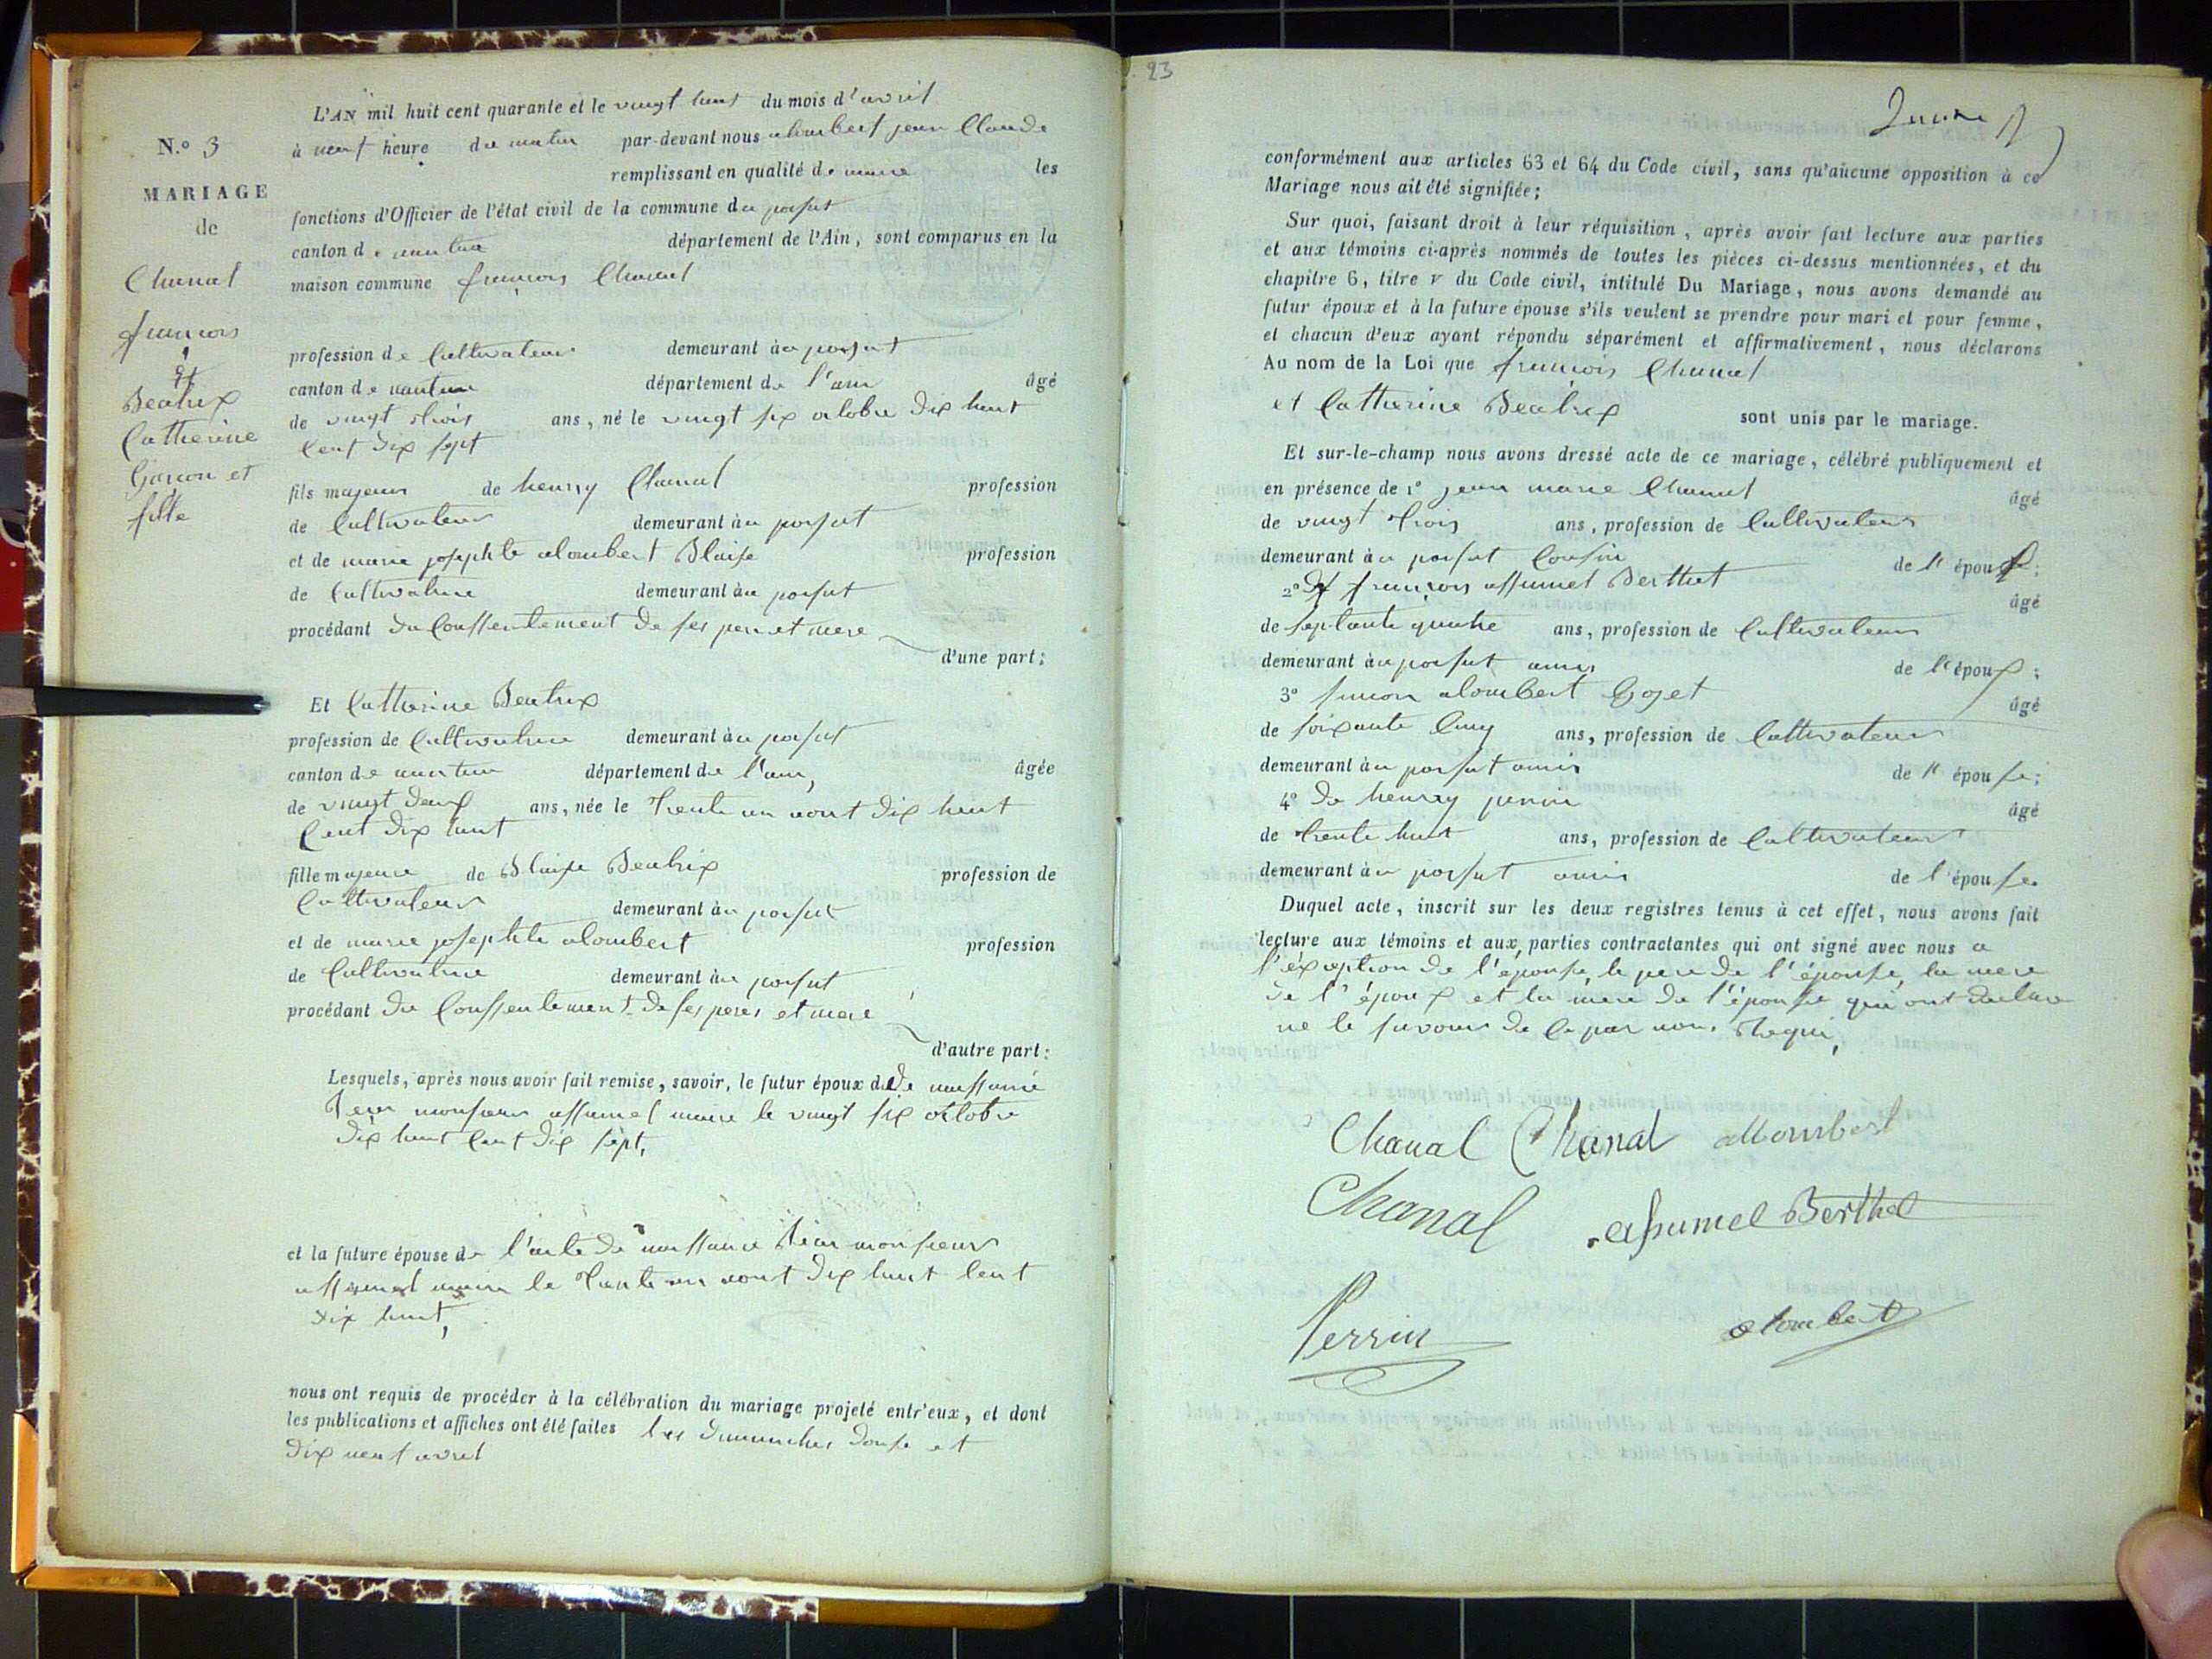 L'AN mil huit cent quarante et le vingt huit du mois d'avril
N.o 3
à neuf heure du matin par-devant nous alombert jean Claude
remplissant en qualité de maire les
MARIAGE
fonctions d'Officier de l'état civil de la commune du porsut
de
canton de nantua département de l'Ain, sont comparus en la
Chanal
maison commune françois Chanal
françois
profession de Cultivateur demeurant au porsut
et
canton de nantua département de l'ain âgé
Beatrix
de vingt trois ans, né le vingt six octobre dix huit
Catherine
cent dix sept
Garçon et
fils majeur de henry Chanal profession
fille
de Cultivateur demeurant au porsut
et de marie josephte alombert Blaise profession
de Cultivatrice demeurant au porsut
procédant du Conssentement de ses pere et mere
d'une part;
Et Catherine Beatrix
profession de Cultivatrice demeurant au porsut
canton de nantua département de l'ain, âgée
de vingt deux ans, née le trente un aout dix huit
Cent dix huit
fille majeure de Blaise Beatrix profession de
Cultivateur demeurant au porsut
et de marie josephte alombert profession
de Cultivatrice demeurant au porsut
procédant du Conssentement de ses peres et mere
d'autre part:
Lesquels, après nous avoir fait remise, savoir, le futur époux de naissance
monsieur assumel maire le vingt six octobre
dix huit cent dix sept,
et la future épouse de l'acte de naissance monsieur
assumel maire le trente un aout dix huit Cent
dix huit,
nous ont requis de procéder à la célébration du mariage projeté entr'eux, et dont
les publications et affiches ont été faites les dimanches douse et
dix neuf avril
23
conformément aux articles 63 et 64 du Code civil, sans qu'aucune opposition à ce
Mariage nous ait été signifiée;
Sur quoi, faisant droit à leur réquisition, après avoir fait lecture aux parties
et aux témoins ci-après nommés de toutes les pièces ci-dessus mentionnées, et du
chapitre 6, titre v du Code civil, intitulé Du Mariage, nous avons demandé au
futur époux et à la future épouse s'ils veulent se prendre pour mari et pour femme,
et chacun d'eux ayant répondu séparément et affirmativement, nous déclarons
Au nom de la Loi que françois Chanal
et Catherine Beatrix sont unis par le mariage.
Et sur-le-champ nous avons dressé acte de ce mariage, célébré publiquement et
en présence de 1o jean marie Chanal âgé
de vingt trois ans, profession de Cultivateur
demeurant au porsut Cousin de l'époux;
2o françois assumel Berthet âgé
de septante quatre ans, profession de Cultivateur
demeurant au porsut amis de l'époux;
3o simon alombert Goget âgé
de soixante Cinq ans, profession de Cultivateur
demeurant au porsut amis de l'épouse;
4o De henry perrin âgé
de trente huit ans, profession de Cultivateur
demeurant au porsut amis de l'épouse
Duquel acte, inscrit sur les deux registres tenus à cet effet, nous avons fait
lecture aux témoins et aux parties contractantes qui ont signé avec nous a
l'éxeption de l'épouse, le pere de l'épouse, la mere
de l'époux et la mere de l'épouse qui ont declare
ne le savoir de ce par nous requi,
Chanal Chanal allombert
Chanal assumel Berthet
Perrin alombert